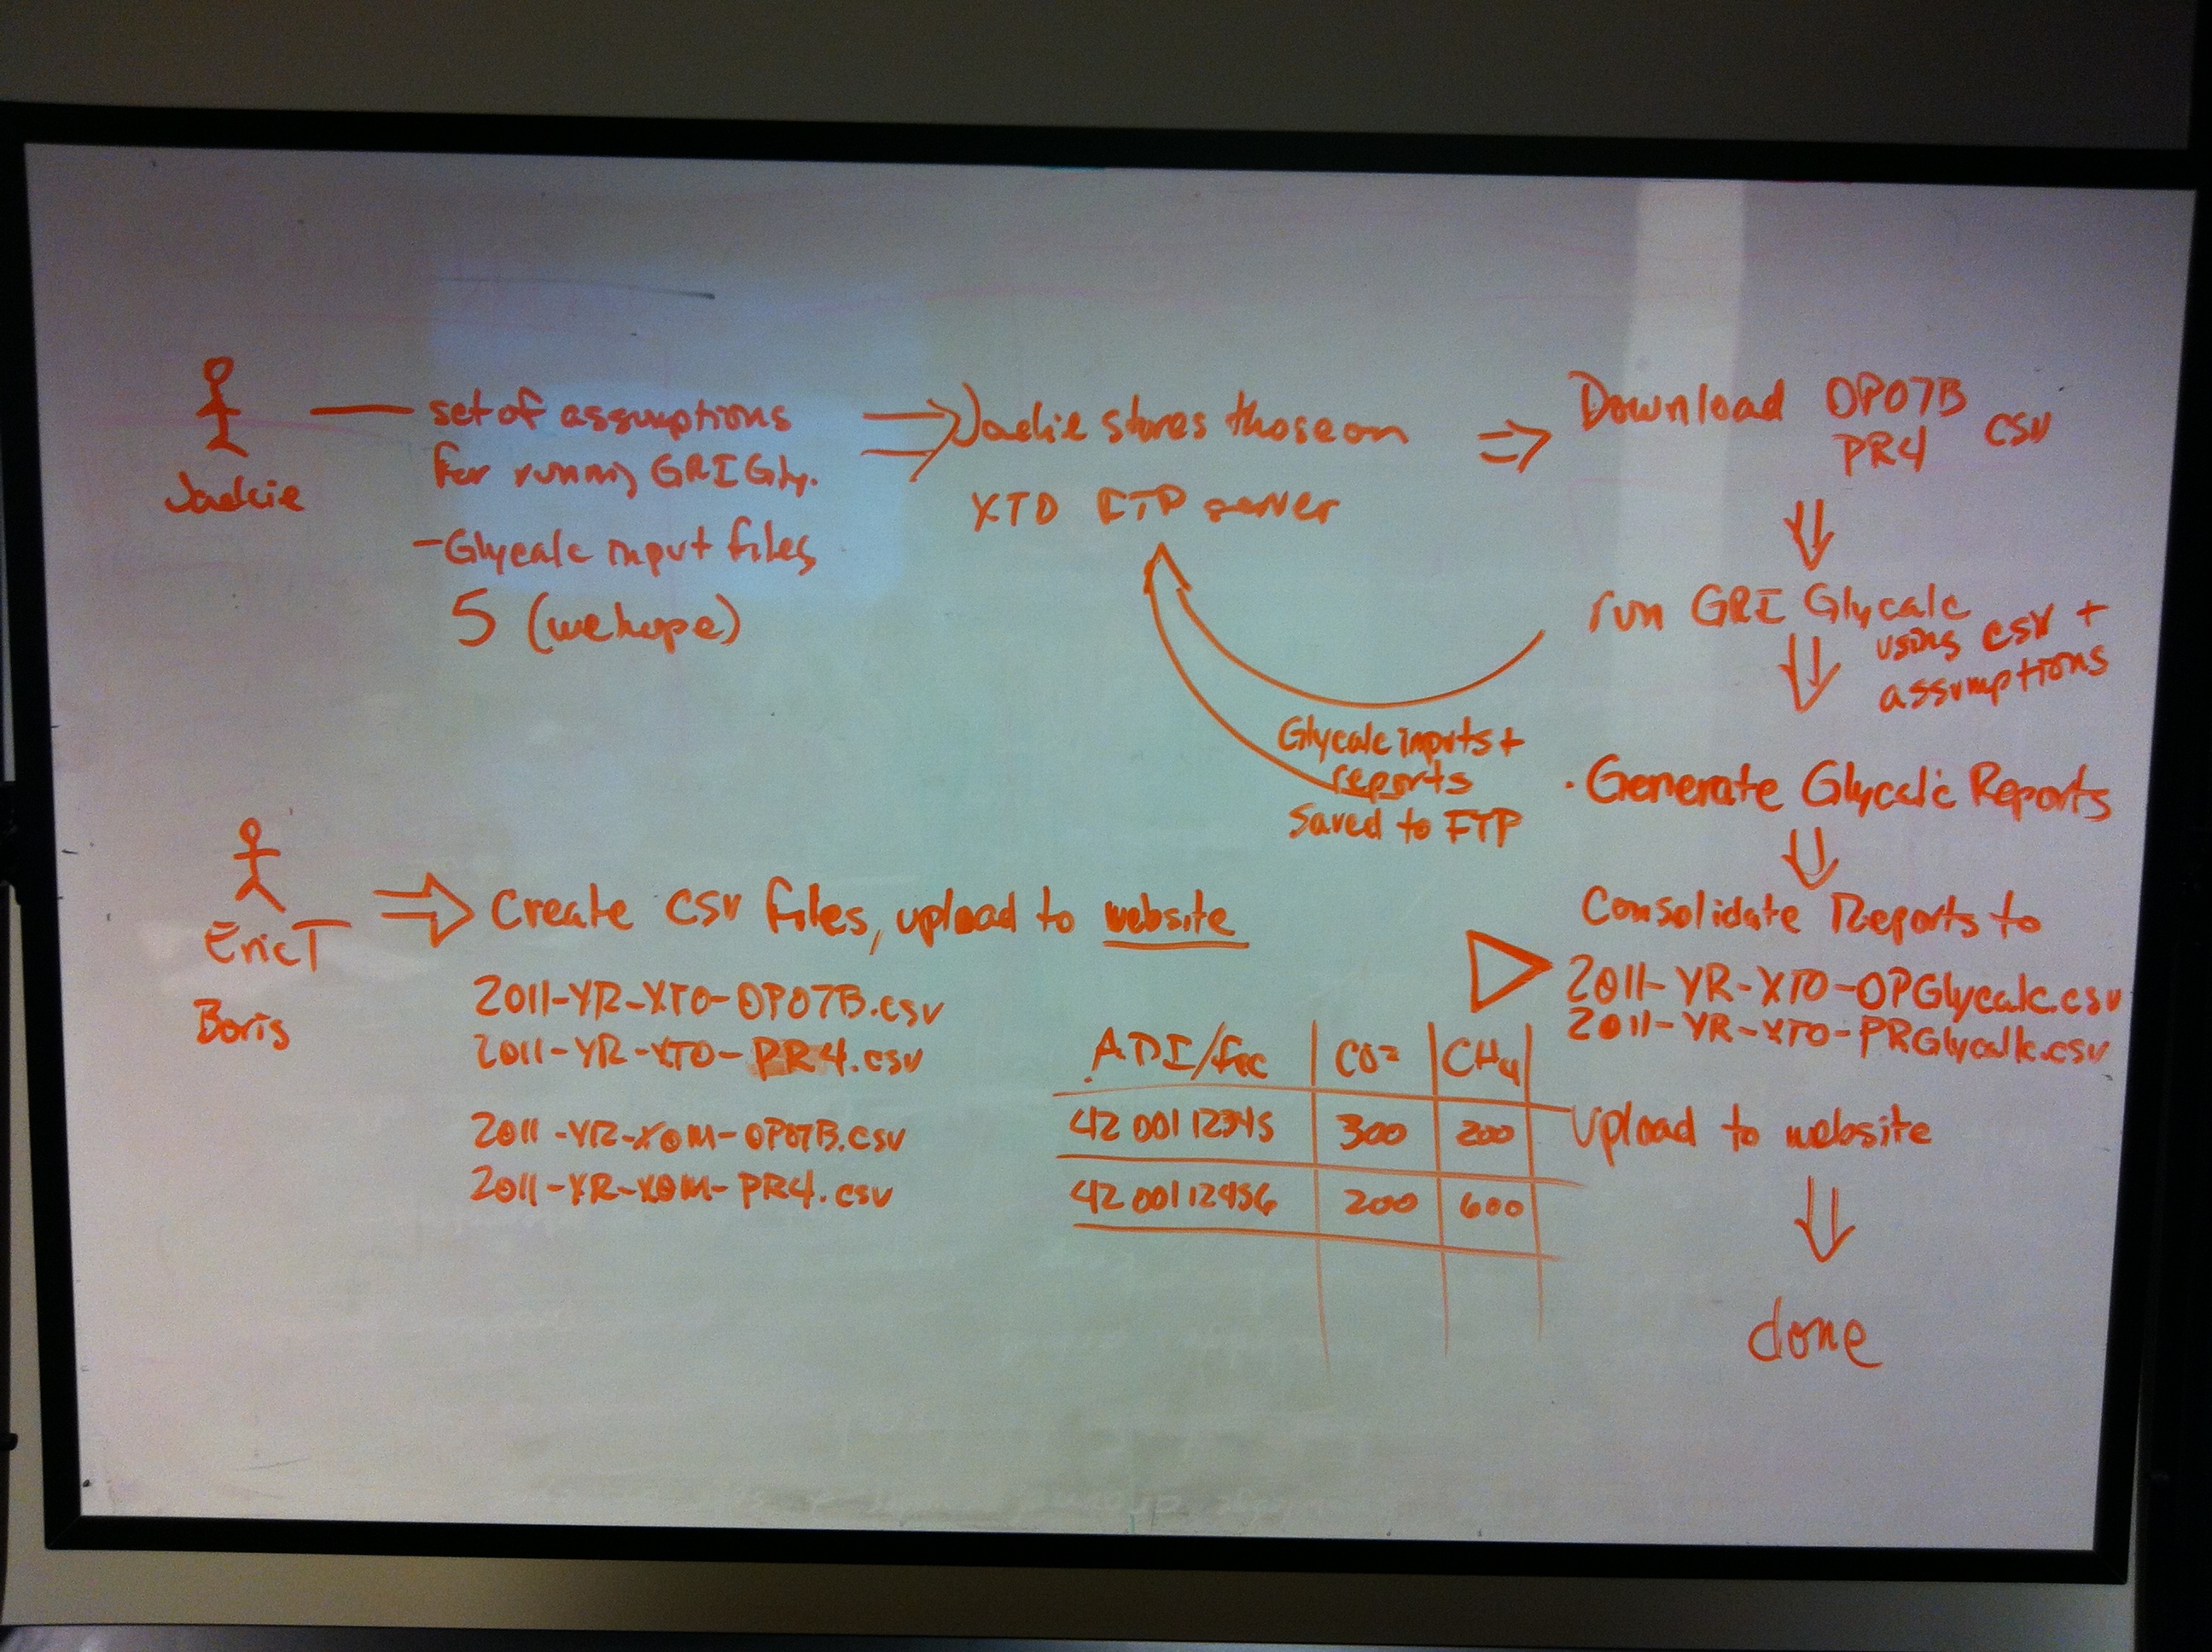 Jackie
set of assumptions
for running GRI Gly.
- Glycalc input files
5 (we hope)
Jackie stores those on
XTO FTP server
Download OP07B
PR4 CSV
run GRI Glycalc
using CSV +
assumptions
Glycalc inputs +
reports
Saved to FTP
• Generate Glycalc Reports
Consolidate Reports to
2011-YR-XTO-OPGlycalc.csv
2011-YR-XTO-PRGlycalc.csv
Upload to website
done
Eric T
Boris
Create CSV files, upload to website
2011-YR-XTO-OP07B.csv
2011-YR-XTO-PR4.csv
2011-YR-XOM-OP07B.csv
2011-YR-XOM-PR4.csv
API/fac CO2 CH4
42 001 12345 300 200
42 001 12456 200 600